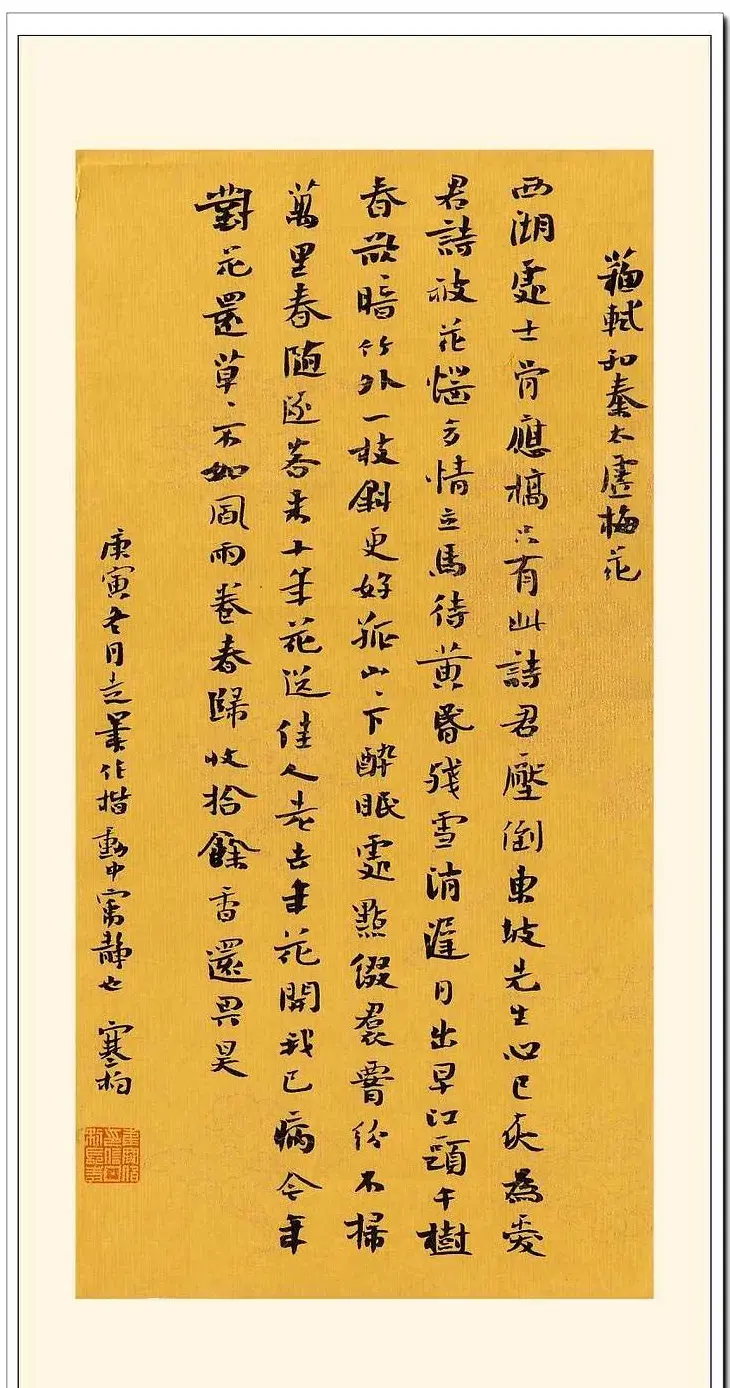 蘇軾和秦太虛梅花
西湖處士骨應槁只有此詩君壓倒東坡先生心已灰為愛
君詩被花惱多情立馬待黃昏殘雪消遲月出早江頭千樹
春欲暗竹外一枝斜更好孤山、下醉眠處點綴裠腰紛不掃
萬里春隨逐客來十年花送佳人老去年花開我已病今年
對花還草、不如風雨卷春歸收拾餘香還畀昊
庚寅冬月走筆作楷動中寓靜也 寒柏